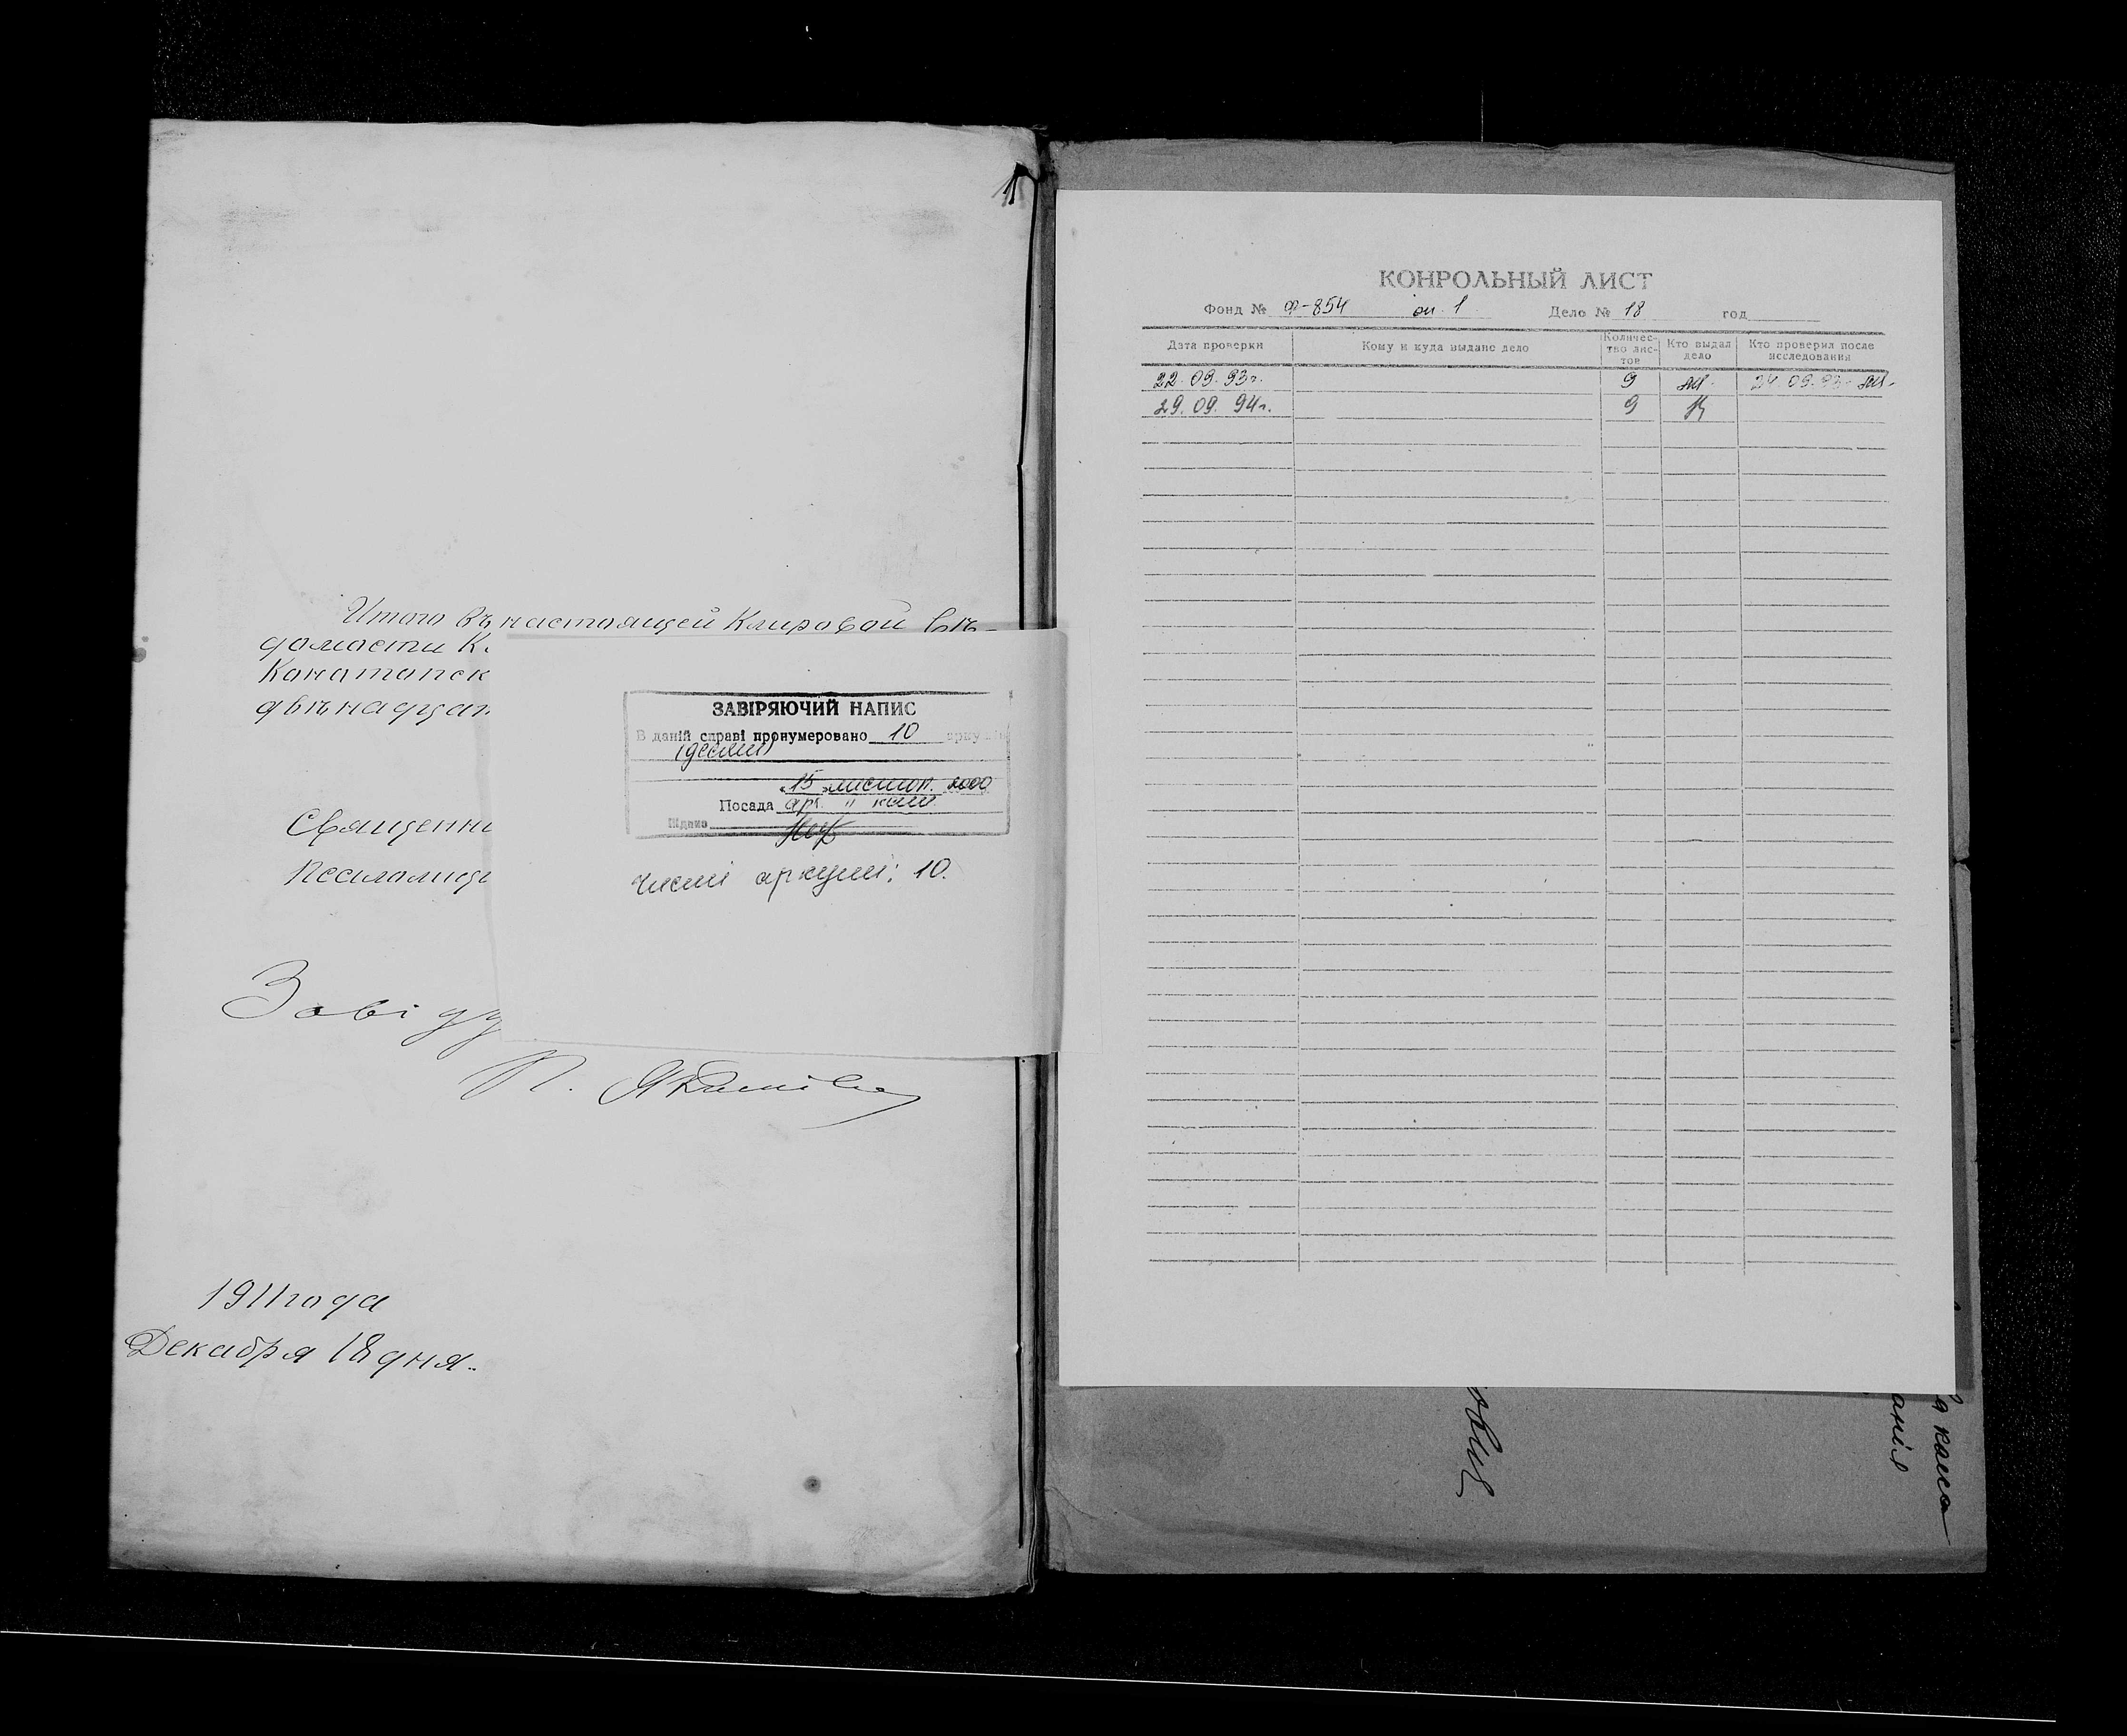 Итого въ настоящей Клировой вѣ-
домости К
Конотопск
двѣнадцат
Священни
Псаломщи
Завіду
П.
1911 года
Декабря 18 дня.
ЗАВІРЯЮЧИЙ НАПИС
В даній справі пронумеровано 10 аркушів
(десять)
"15" листоп. 2000
Посада арх. II кат.
Підпис
чисті аркуші: 10.
КОНРОЛЬНЫЙ ЛИСТ
Фонд № Ф-854 оп. 1 Дело № 18 год
Дата проверки Кому и куда выдано дело Количес-тво лис-тов Кто выдал дело Кто проверил после исследования
22.09.93г. 9 24.09.93
29.09.94г. 9